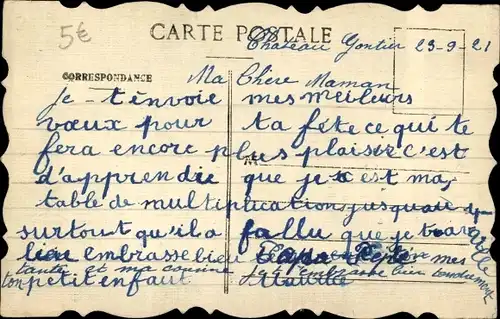 5€
CARTE POSTALE
Chateau Gontier 23-9-21
CORRESPONDANCE
Ma Chère Maman
je t'envoie mes meileurs
vœux pour ta fête ce qui te
fera encore plus plaisir c'est
d'apprendre que je est ma
table de multiplication jusquau
surtout qu'il a fallu que je travaille
embrasse bien Papa mes
tante et ma cousine je t'embrasse bien tendrement
ton petit enfant